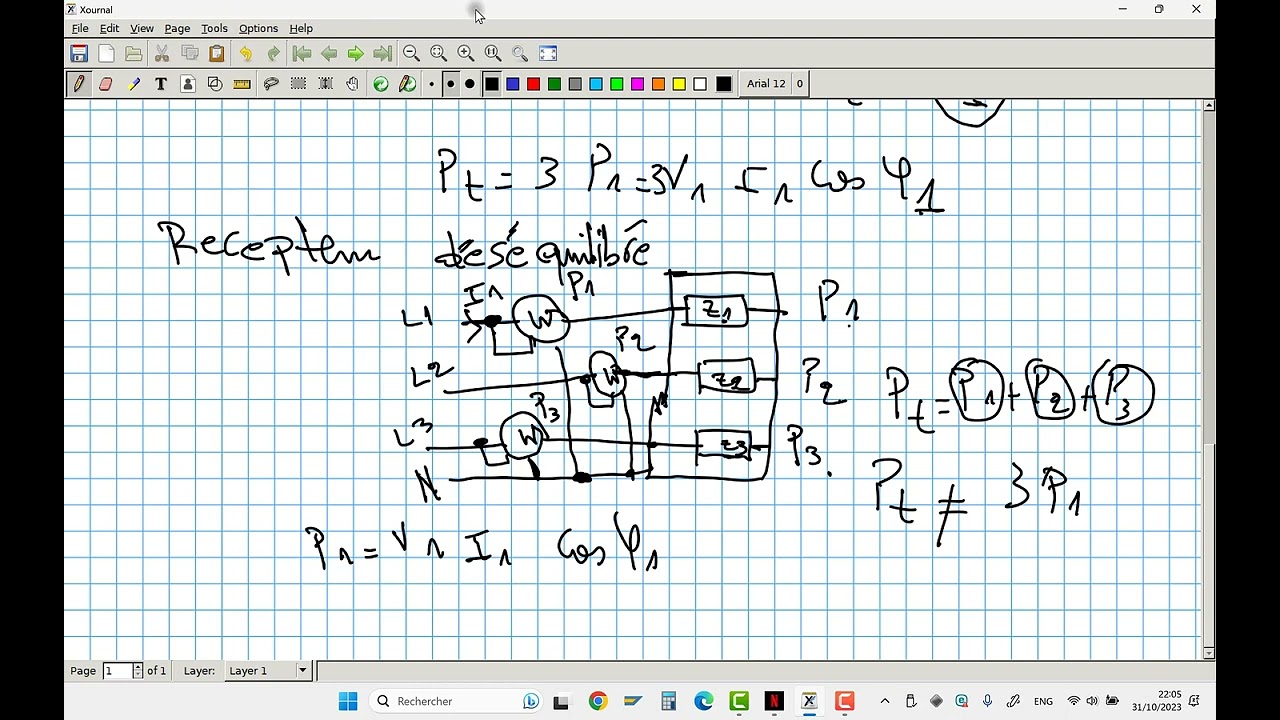 Xournal
File Edit View Page Tools Options Help
Arial 12 0
Pt = 3 P1 = 3V1 I1 Cos φ1
Recepteur déséquilibré
I1 P1
L1 W Z1 P1
P2
L2 W Z2 P2
Pt = P1 + P2 + P3
P3
L3 W Z3 P3
N
Pt ≠ 3P1
P1 = V1 I1 Cos φ1
Page 1 of 1 Layer: Layer 1
Rechercher
ENG
22:05
31/10/2023